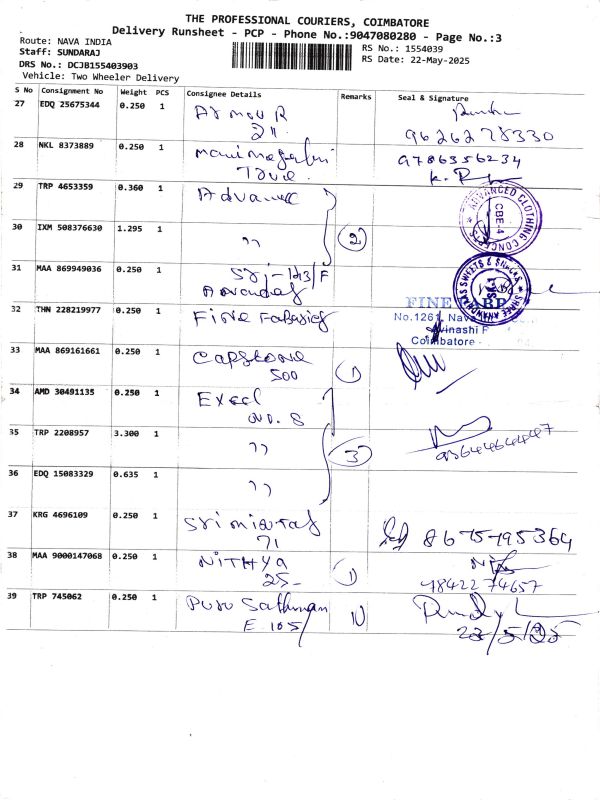 THE PROFESSIONAL COURIERS, COIMBATORE
Delivery Runsheet - PCP - Phone No.:9047080280 - Page No.:3
Route: NAVA INDIA
Staff: SUNDARAJ
RS No.: 1554039
DRS No.: DCJB155403903
RS Date: 22-May-2025
Vehicle: Two Wheeler Delivery
S No Consignment No Weight PCS Consignee Details Remarks Seal & Signature
27 EDQ 25675344 0.250 1
9626278330
28 NKL 8373889 0.250 1
9786356234
29 TRP 4653359 0.360 1 Advance
ADVANCED CLOTHING CONCEPTS
CBE-4
30 IXM 508376630 1.295 1 " 2
31 MAA 869949036 0.250 1 Sri-123/F
SHREE ANANDHAAS SWEETS & SNACKS
32 THN 228219977 0.250 1 Fine Fabrics
FINE
No.1261, Nava
Avinashi
Coimbatore
33 MAA 869161661 0.250 1 Capstone 1
500
34 AMD 30491135 0.250 1 Excel
NO. 8
35 TRP 2208957 3.300 1 " 3
9364464447
36 EDQ 15083329 0.635 1 "
37 KRG 4696109 0.250 1
71
38 MAA 9000147068 0.250 1 NITHYA 1
25-
39 TRP 745062 0.250 1
E.105/
23/5/25